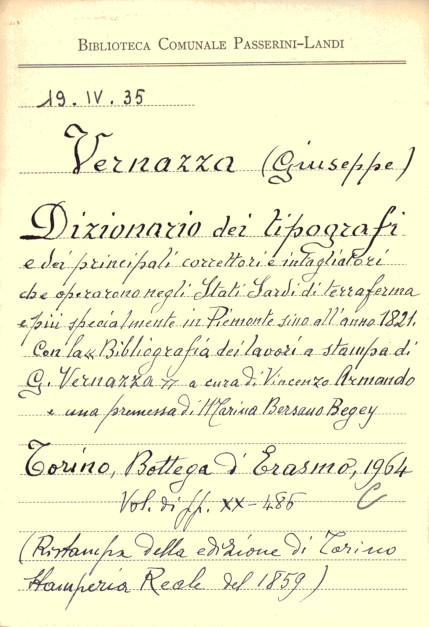 BIBLIOTECA COMUNALE PASSERINI-LANDI
19. IV. 35
Vernazza (Giuseppe)
Dizionario dei tipografi
e dei principali correttori e intagliatori
che operarono negli Stati Sardi di terraferma
e più specialmente in Piemonte sino all'anno 1821.
Con la « Bibliografia dei lavori a stampa di
G. Vernazza » a cura di Vincenzo Armando
e una premessa di Marina Bersano Begey
Torino, Bottega d'Erasmo, 1964
C
Vol. di ff. XX-486
(Ristampa della edizione di Torino
Stamperia Reale del 1859)